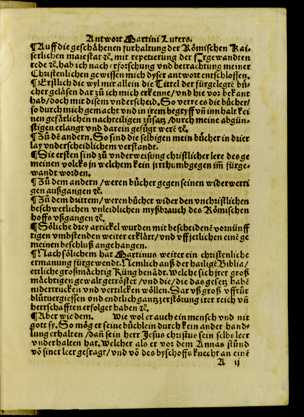 Antwort Martini Luters.
¶ Auff die geschähenen fürhaltung der Römischen Kai=
serlichen maiestat ꝛc̃. mit repetierung der Fürgewandten
rede ꝛc̃. hab ich nach erforschung vnd betrachtung meiner
Christenlichen gewissen mich dyser antwort entschlossen.
¶ Erstlich die wyl mir allein die Tittel der fürgelegte bü=
cher geläsen dar zů ich mich erkenne/ vnd hie vor bekant
hab/ doch mit disem vnderscheyd. So verre es die bücher/
so durch mich gemacht vnd in irem begryff vñ innhalt kei=
nen gefärlichen nachteiligen zůsatz/ durch meine abgün=
stigen erlangt vnd darein gesügt werẽ ꝛc̃.
¶ Zů dẽ andern. So sind die selbigen mein bücher in drier
lay vnderscheidlichem verstandt.
¶ Die ersten sind zů vnderweisung christlicher lere des ge
meinen volcks jn welchem kein irrthumb gegen im fürge=
wandt worden.
¶ Zů dem andern/ weren bücher gegen seinen widerwerti
gen außgangen ꝛc̃.
¶ Zů dem drittem/ weren bücher wider den vnchristlichen
beschwerlichen vnleidlichen myßbrauch des Römischen
hoffs vßgangen ꝛc̃.
¶ Söliche drey artickel wurden mit bescheidenẽ vornünff
tigen vmbstenden weiter erklärt/ vnd vff jetlichen eine ge
meinen beschluß angehangen.
¶ Nach sölichem hat Martinus weiter ein christenliche
ermanung fürgewendt. Nemlich auß der hailige Biblia/
ettliche großmächtig Küng benãdt. Welche sich jrer groß
mächtigen gewalt getröstet/ vnd die/ die das gesetz habẽ
nidertrucken vnd vertilcken wöllen. Dar vß groß vfftür
blůtuergiessen vnd endtlich gantz zerstörung irer reich vñ
herrschafften erfolget haben ꝛc̃.
¶ Aber wie dem. Wie wol er auch ein mensch vnd nit
gott sy. So mög er seine büchlein durch kein ander hand=
lung erhalten/ dañ sein herr Jesus christus sein selbs leer
vnderhalten hat. Welcher als er vor dem Annas stůnd
vö siner leer gefragt/ vnd võ des byschoffs knecht an eine
A ij